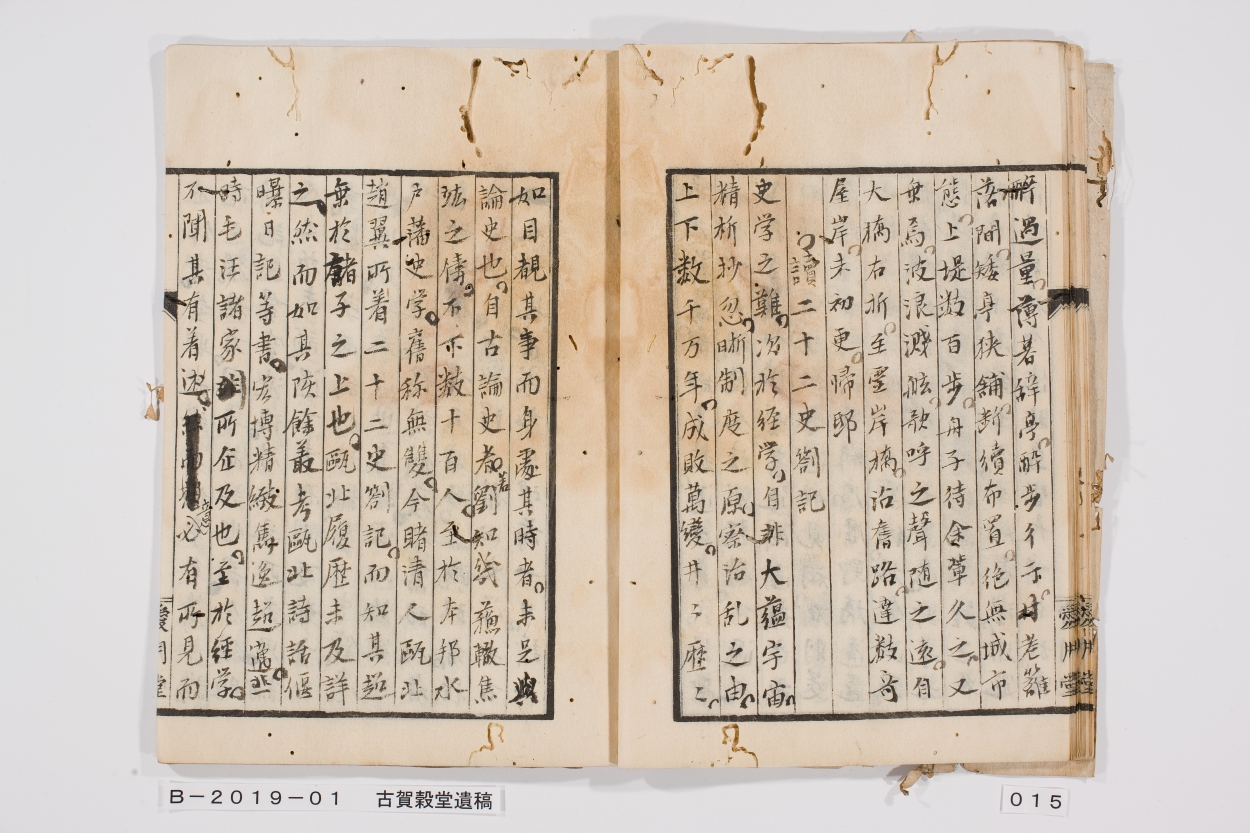 酔過量薄著辞亭酔歩行示村老籬
落間矮亭狭舗断続布置絶無城市
態上堤数百歩舟子待余輩久之又
乗焉波浪濺舷歌呼之聲随之遠自
大橋右折至霊岸橋沿舊路達数寄
屋岸未初更帰邸
讀二十二史劄記
史学之難次於経学自非大蘊宇宙
精析抄忽晰制度之原察治乱之由
上下数千万年成敗萬變井〻歴〻
如目覩其事而身處其時者未足與
論史也自古論史者劉知幾蘇轍焦
竑之儔不下数十百人至於本邦水
戸藩史学舊称無雙今睹清人甌北
趙翼所着二十二史劄記而知其超
乗於諸子之上也甌北履歴未及詳
之然而如其陔餘叢考甌北詩話偃
曝日記等書宏博精緻雋逸超寓非
時毛汪諸家所企及也至於経学
不聞其有着述 意必有所見而
愛月堂
B-2019-01 古賀穀堂遺稿
015